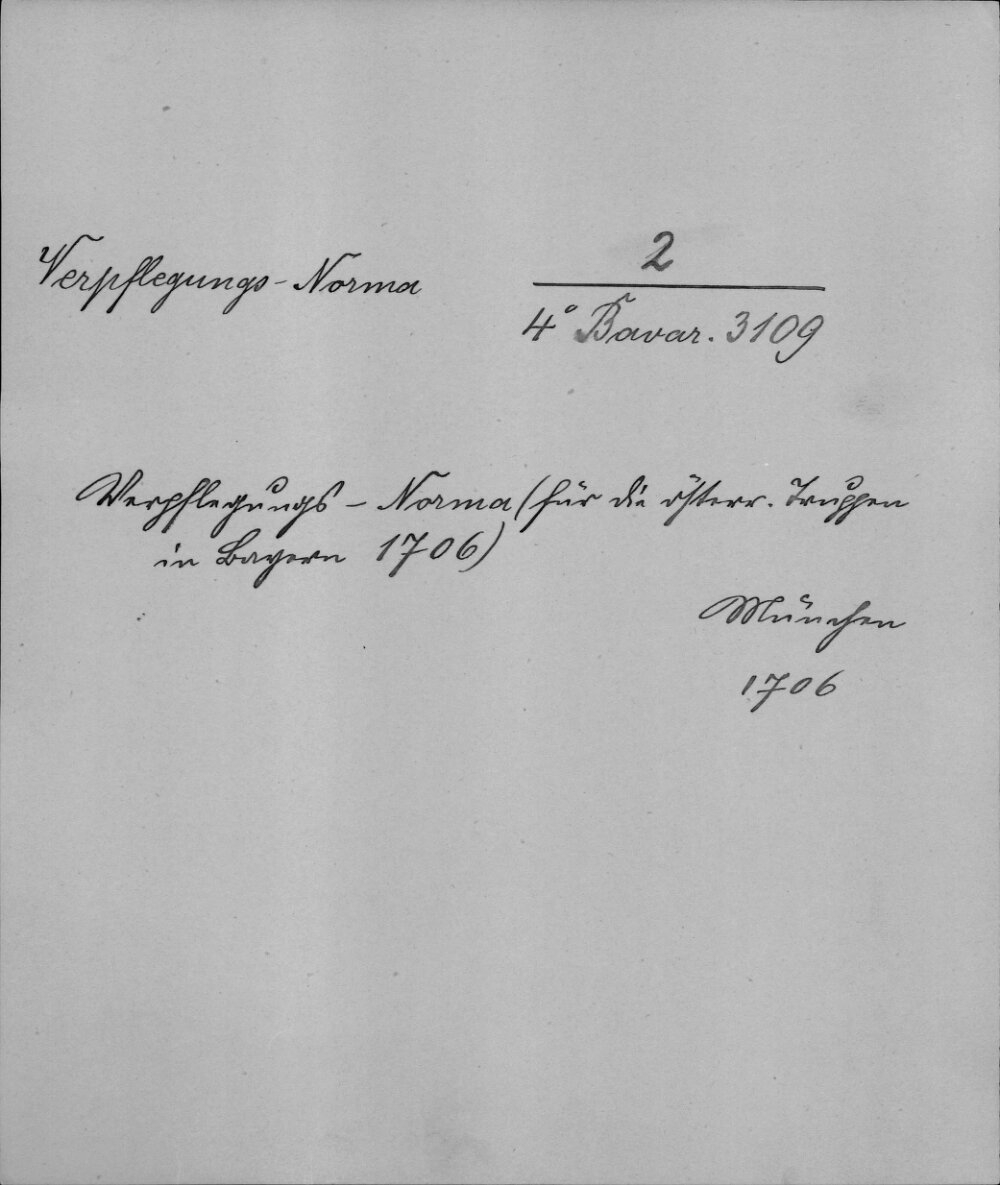 Verpflegungs-Norma
2
4° Bavar. 3109
Verpflegungs - Norma (für die österr. Truppen
in Bayern 1706)
München
1706